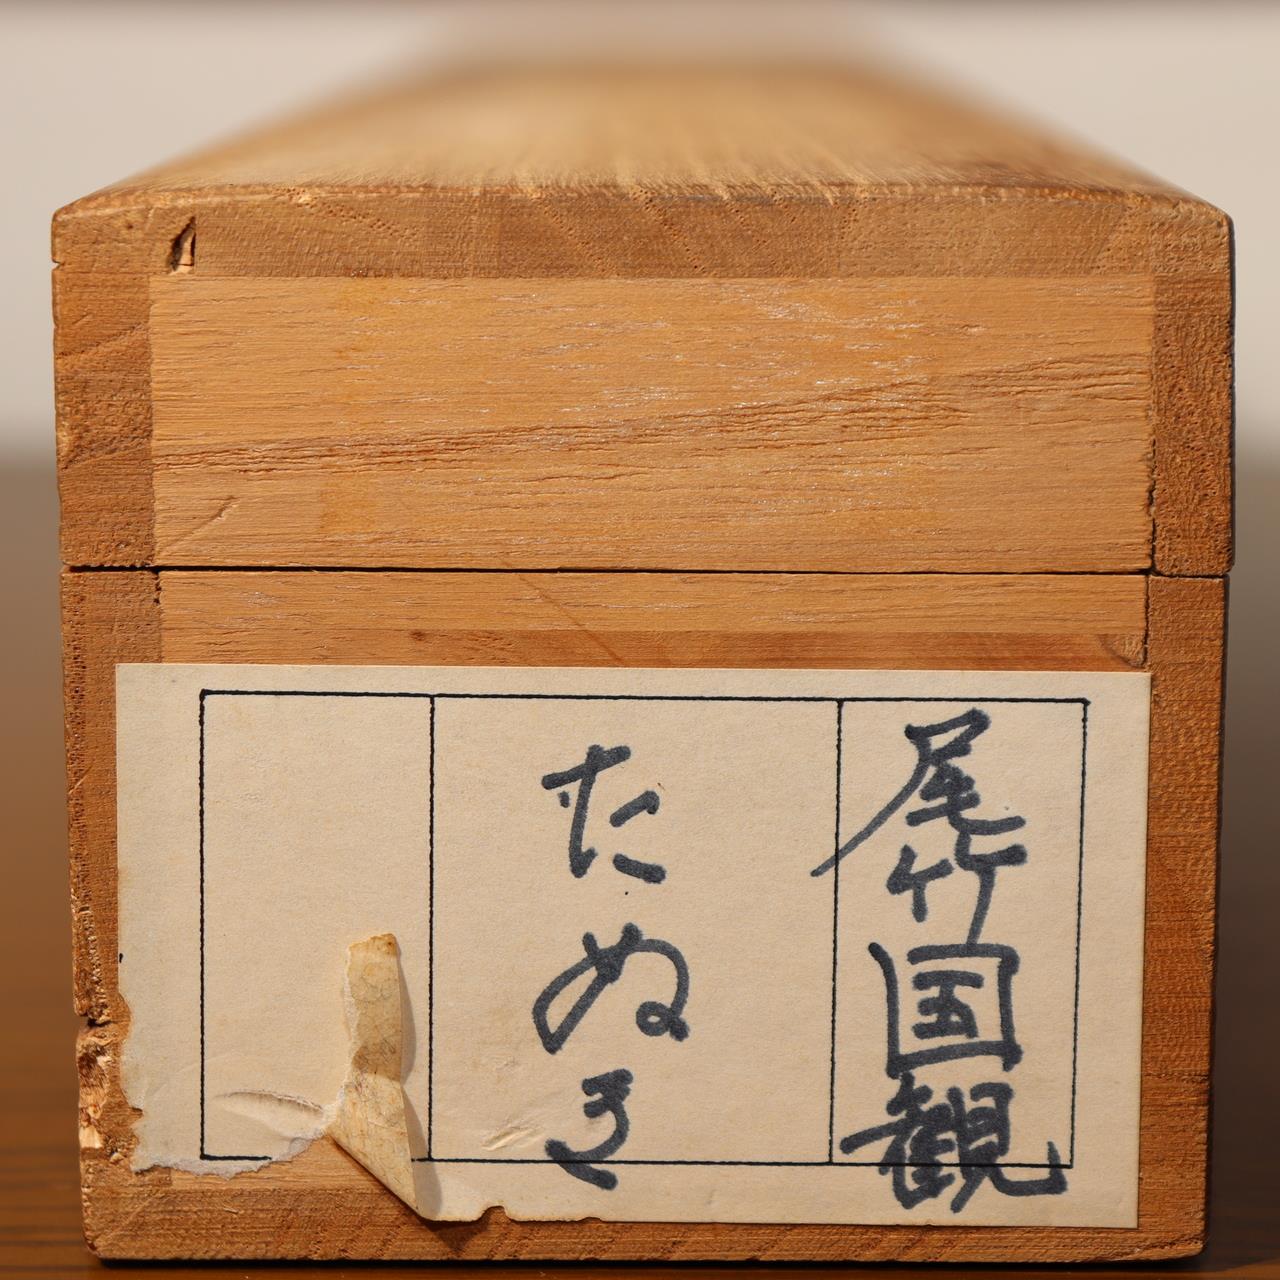 尾竹国観
たぬき